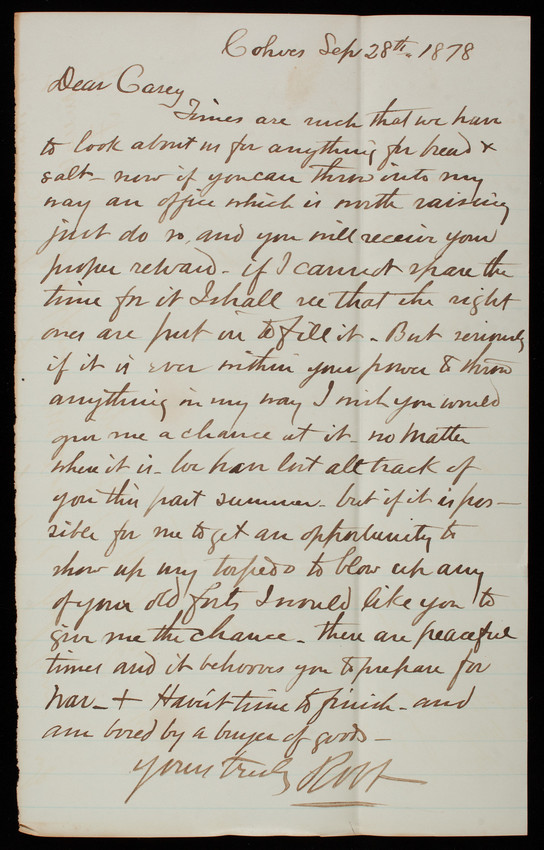 Cohoes Sep 28th. 1878
Dear Casey
Times are such that we have
to look about us for anything for bread +
salt - now if you can throw into my
way an office which is worth raising
just do so, and you will receive your
proper reward - if I cannot spare the
time for it I shall see that the right
ones are put in to fill it - But seriously
if it is ever within your power to throw
anything in my way I wish you would
give me a chance at it - no matter
where it is - We have lost all track of
you this past summer - but if it is pos-
sible for me to get an opportunity to
show up my torpedo to blow up any
of your old forts I would like you to
give me the chance - these are peaceful
times and it behooves you to prepare for
war - + Hav'nt time to finish - and
am bored by a buyer of goods -
yours truly